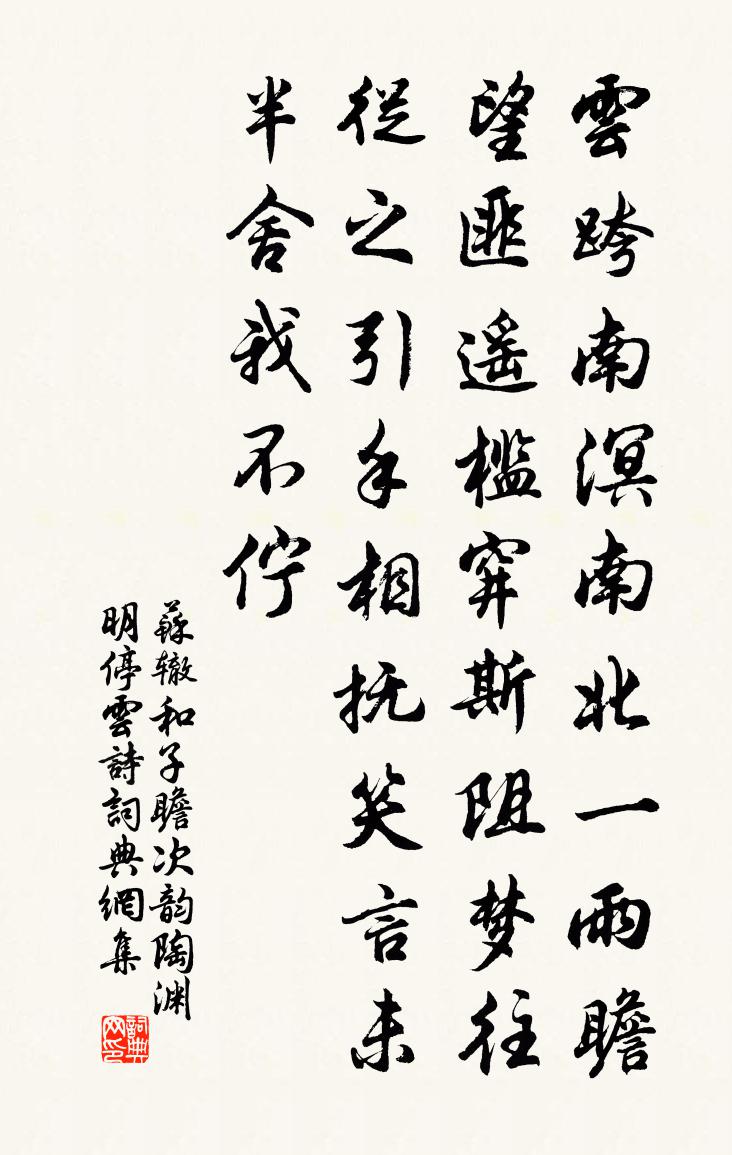 雲跨南溟南北一雨瞻
望匪遥槛穽斯阻梦往
從之引手相抚笑言未
半舍我不佇
蘇辙和子瞻次韵陶渊
明停雲詩詞典網集
詞典
网印